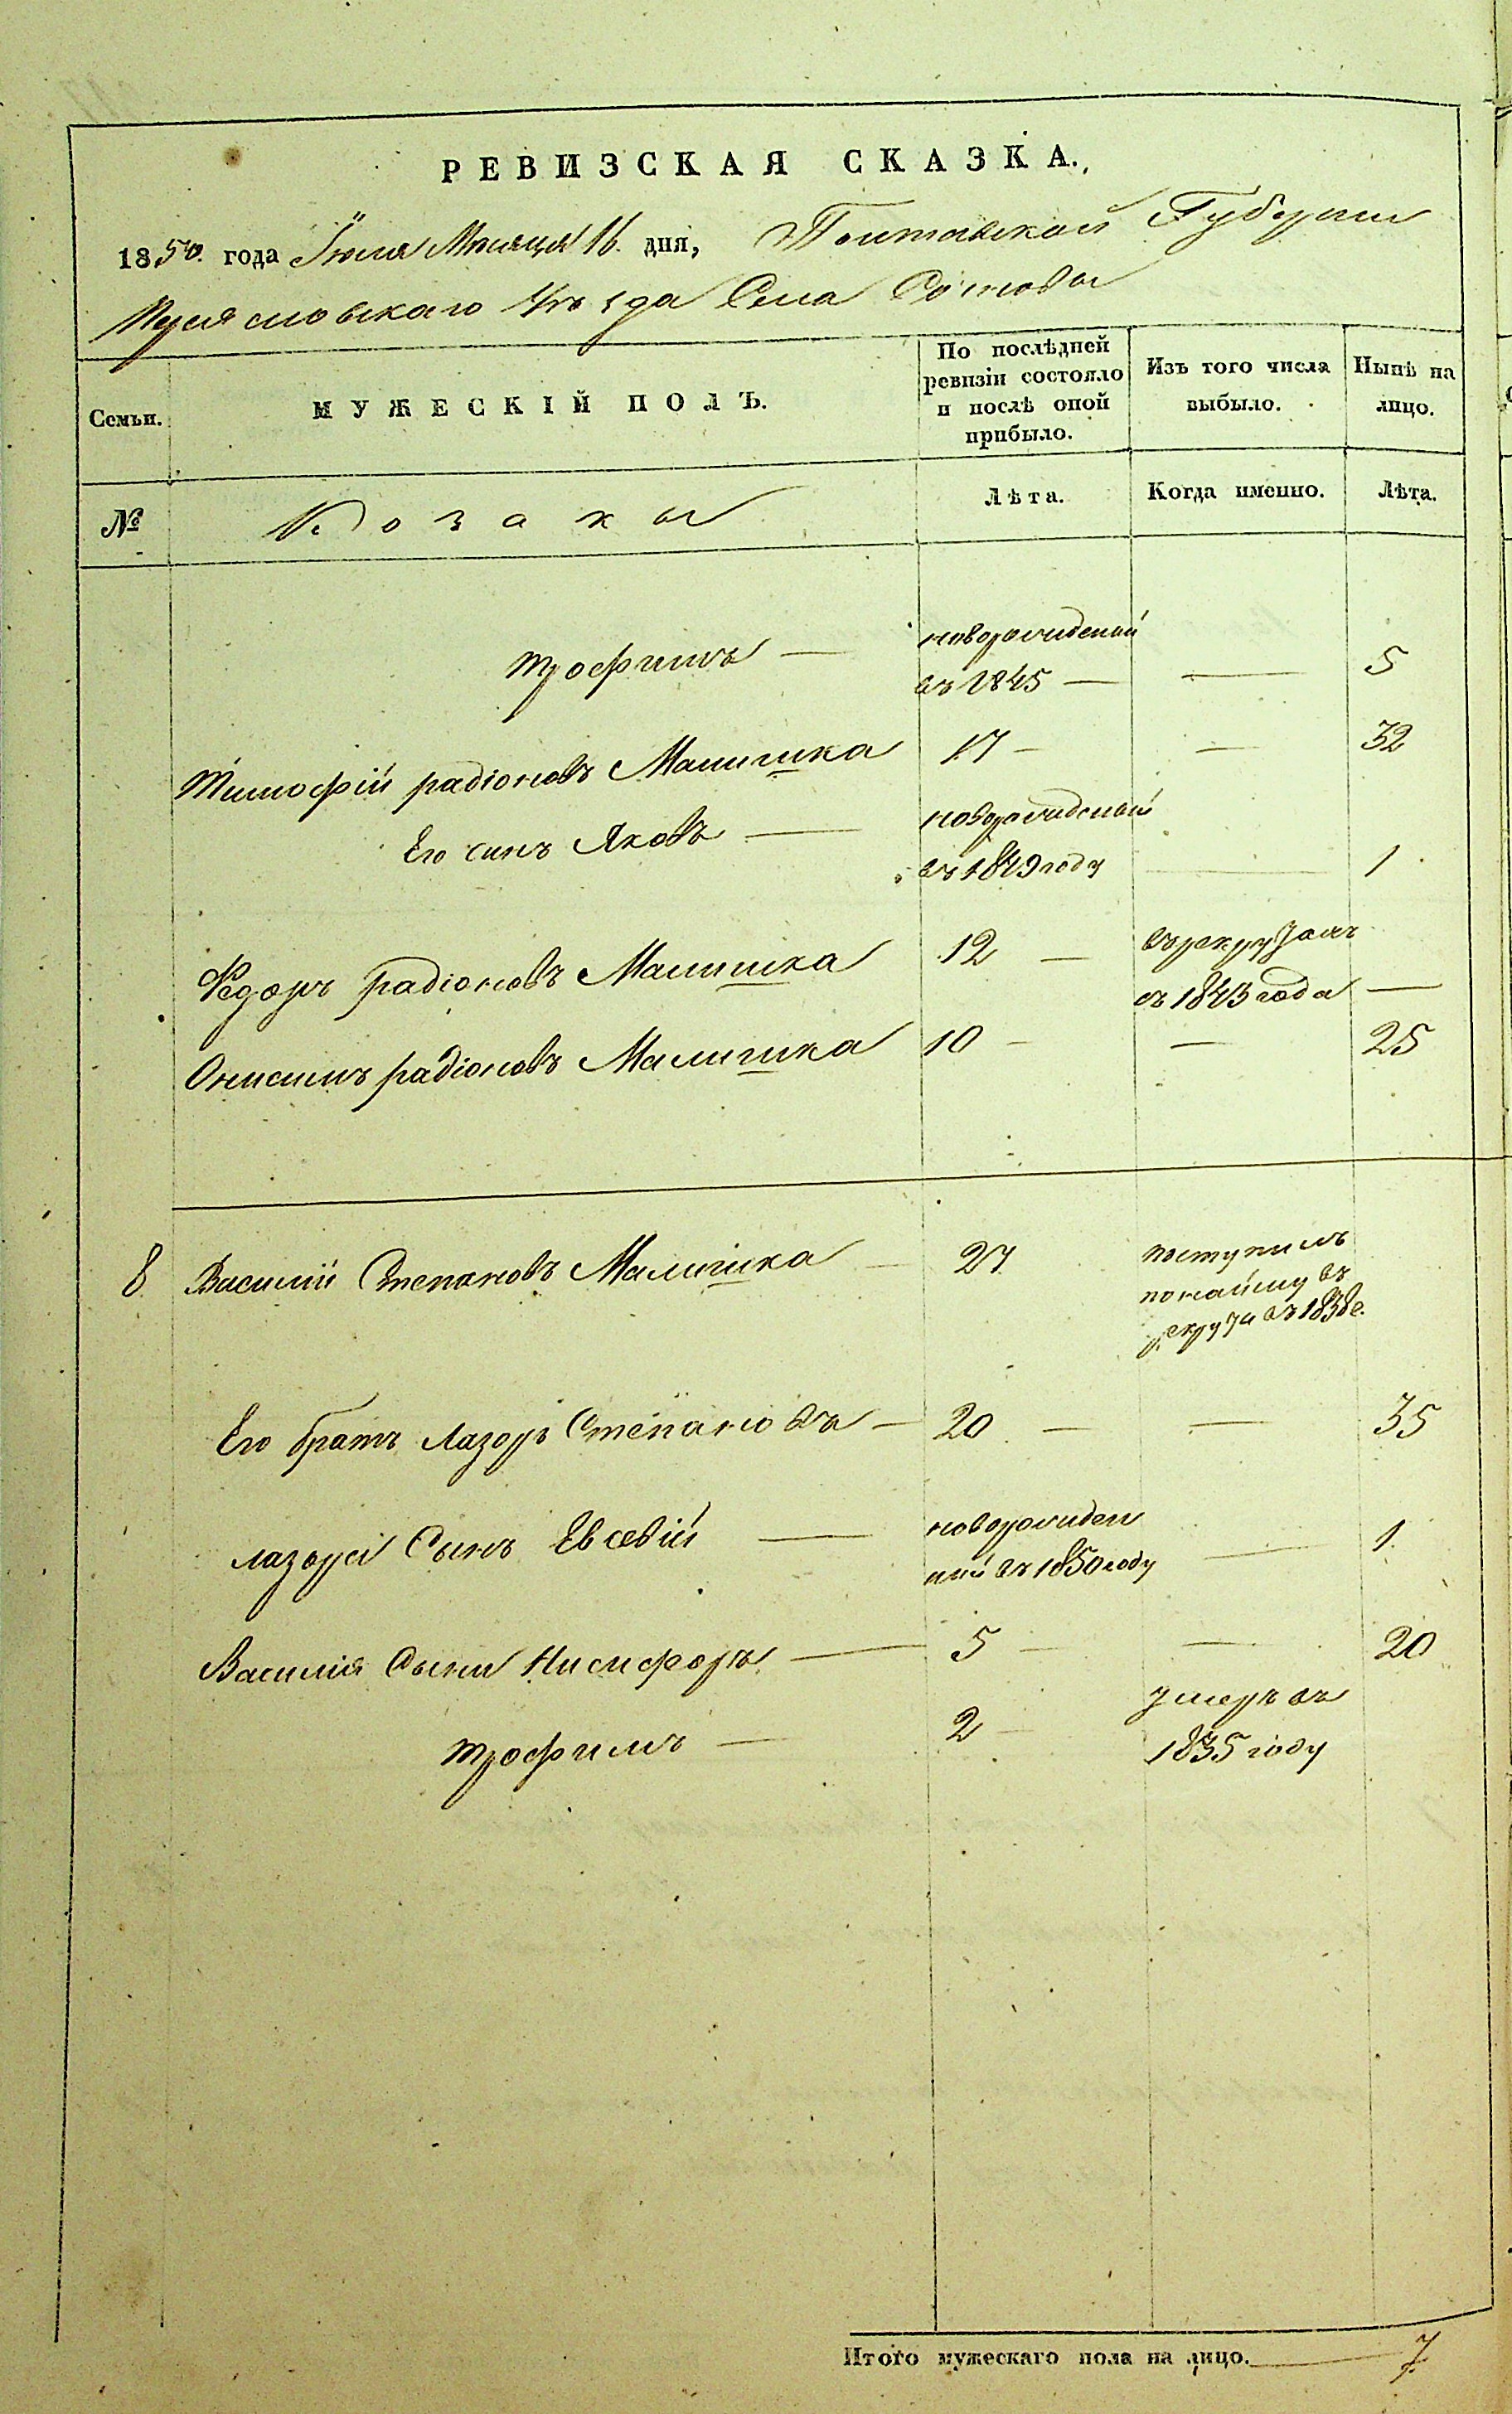 РЕВИЗСКАЯ СКАЗКА.
1850. года Іюля Мѣсяца 16. дня, Полтавской Губерніи
Переясловскаго Уѣзда Села Сошов
Семьи.
МУЖЕСКІЙ ПОЛЪ.
По послѣдней ревизіи состояло и послѣ оной прибыло.
Изъ того числа выбыло.
Нынѣ на лицо.
№
Козаки
Лѣта.
Когда именно.
Лѣта.
новорожденый
трофимъ — въ 1845 — — 5
Тимофій радіоновъ Малишка 17 — — 32
новорожденый
Его синъ Яковъ — въ 1849 году — 1
Федоръ радіоновъ Малишка 12 — въ рекрутахъ
съ 1843 года —
Онисимъ радіоновъ Малишка 10 — — 25
8 Василій Степановъ Малишка — 27 поступилъ
по найму въ
рекруты въ 1838 г.
Его братъ Лазорь Степановъ — 20 — — 35
лазоря Сынъ Евсевій — новорожден
ный въ 1850 году — 1
Василія Сыни Никифоръ — 5 — — 20
трофимъ — 2 — умеръ въ
1835 году
Итого мужескаго пола на лицо. — 7